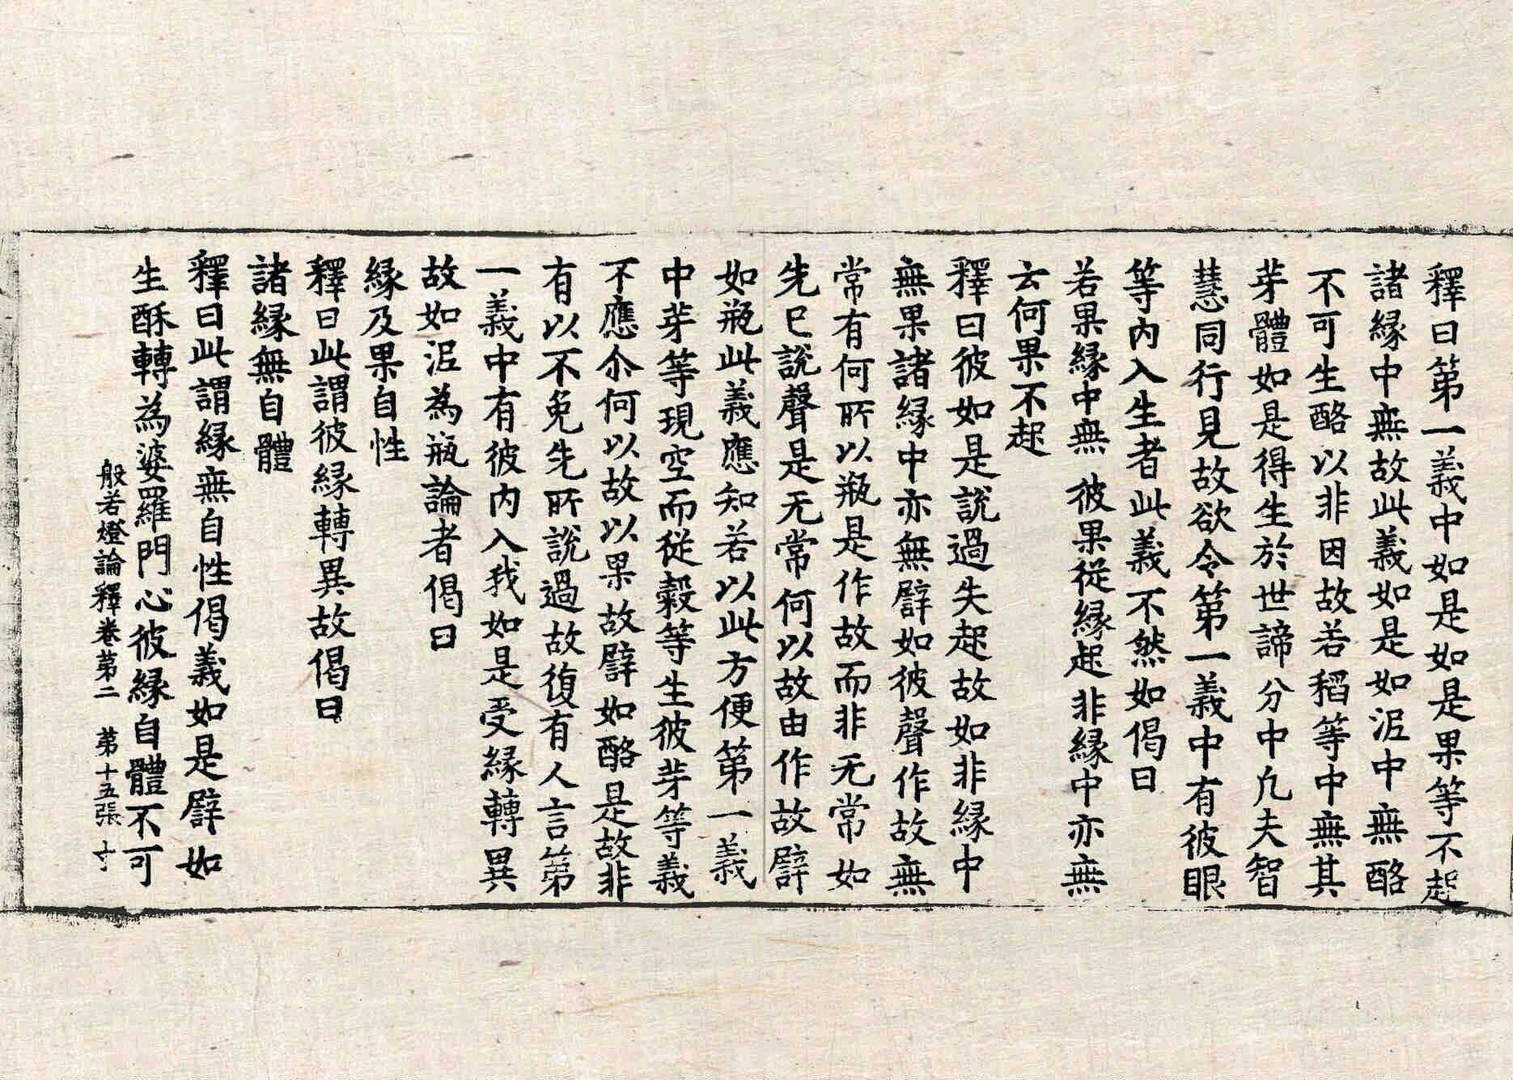 釋曰第一義中如是如是果等不起
諸緣中無故此義如是如泥中無酪
不可生酪以非因故若稻等中無其
芽體如是得生於世諦分中凢夫智
慧同行見故欲令第一義中有彼眼
等內入生者此義不然如偈曰
若果緣中無 彼果從緣起 非緣中亦無
云何果不起
釋曰彼如是說過失起故如非緣中
無果諸緣中亦無譬如彼聲作故無
常有何所以瓶是作故而非无常如
先已說聲是无常何以故由作故譬
如瓶此義應知若以此方便第一義
中芽等現空而從穀等生彼芽等義
不應尒何以故以果故譬如酪是故非
有以不免先所說過故復有人言第
一義中有彼內入我如是受緣轉異
故如泥為瓶論者偈曰
緣及果自性
釋曰此謂彼緣轉異故偈曰
諸緣無自體
釋曰此謂緣無自性偈義如是譬如
生酥轉為婆羅門心彼緣自體不可
般若燈論釋卷第二 第十五張 寸